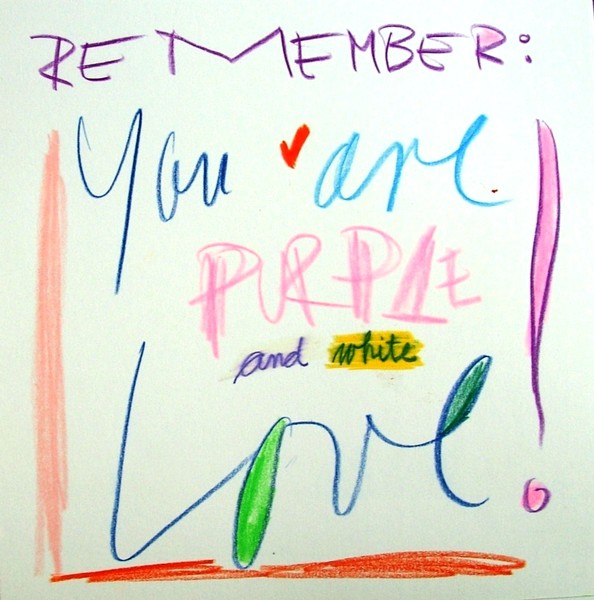 REMEMBER:
You are
PURPLE
and white
Love!